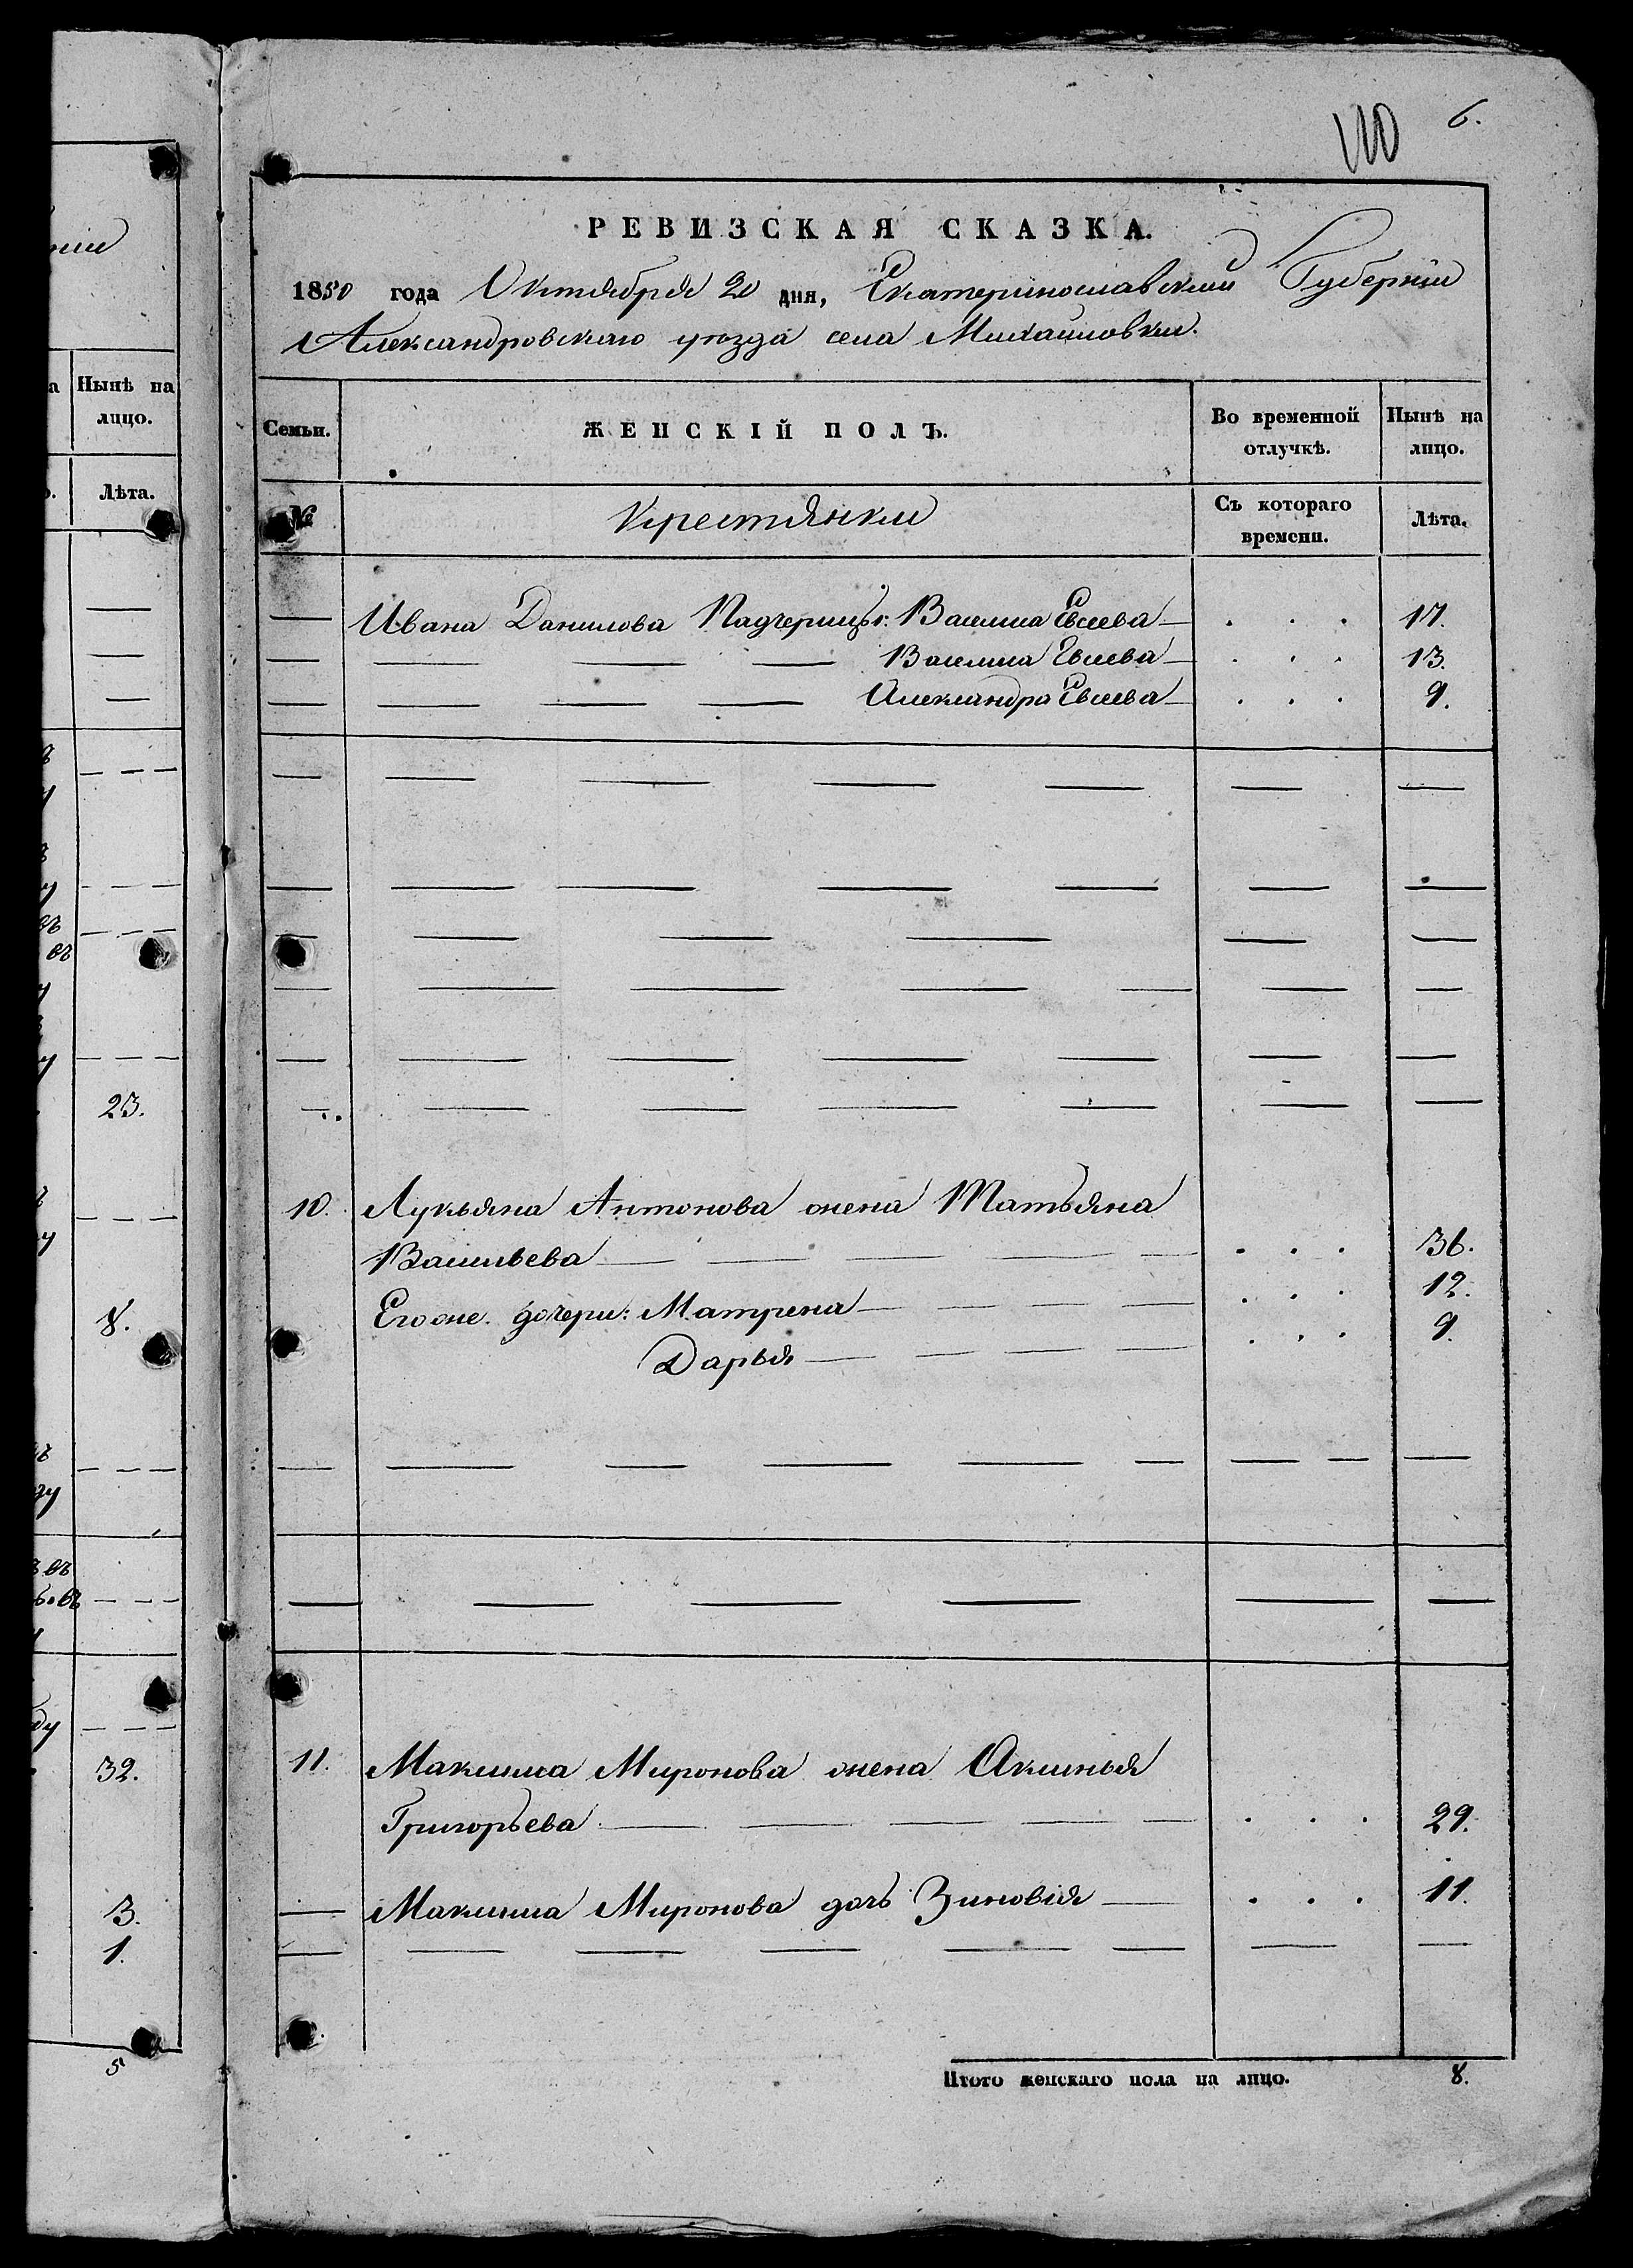 110 6.
РЕВИЗСКАЯ СКАЗКА.
1850 года Октября 20 дня, Екатеринославской Губерніи
Александровскаго уѣзда села Михайловки.
Нынѣ на
лицо.
Лѣта.
Семьи.
ЖЕНСКІЙ ПОЛЪ.
Во временной
отлучкѣ.
Нынѣ на
лицо.
№
Крестянки
Съ котораго
времени.
Лѣта.
— Ивана Данилова Падчерицы: Васелиса Евсеева — . . . 17.
— — — — Васелиса Евсеева — . . . 13.
— — — — Александра Евсеева — . . . 9.
23.
10. Лукьяна Антонова жена Татьяна
Васильева — — — — . . . 36.
Егоже дочери: Матрена — — — — . . . 12.
Дарья — — — — . . . 9.
8.
32.
11. Максима Миронова жена Акинья
Григорьева — — — — — . . . 29.
— Максима Миронова дочь Зиновія — . . . 11.
3.
1.
5
Итого женскаго пола на лицо. 8.